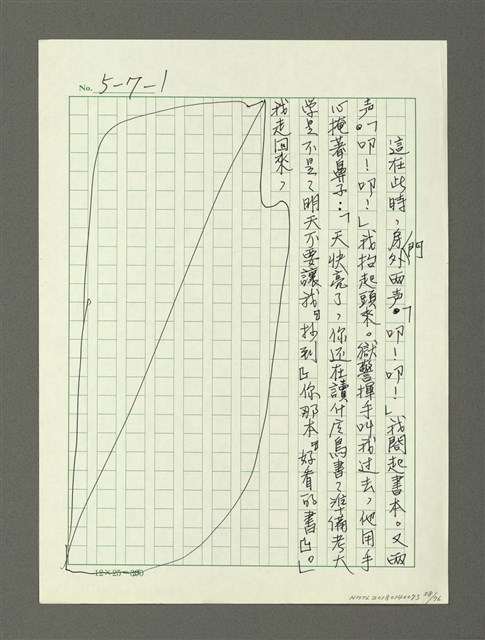 No. 5-7-1
這在此時,房門外兩声。「叩!叩!」我閤起書本。又兩
声。「叩!叩!」我抬起頭來。獄警揮手叫我过去,他用手
心掩著鼻子:「天快亮了,你还在讀什庅鳥書?准備考大
学是不是?明天不要讓我『抄到』你那本『好看的書』。」
我走回來,
12×25=300
NMTL20180140073 28/76